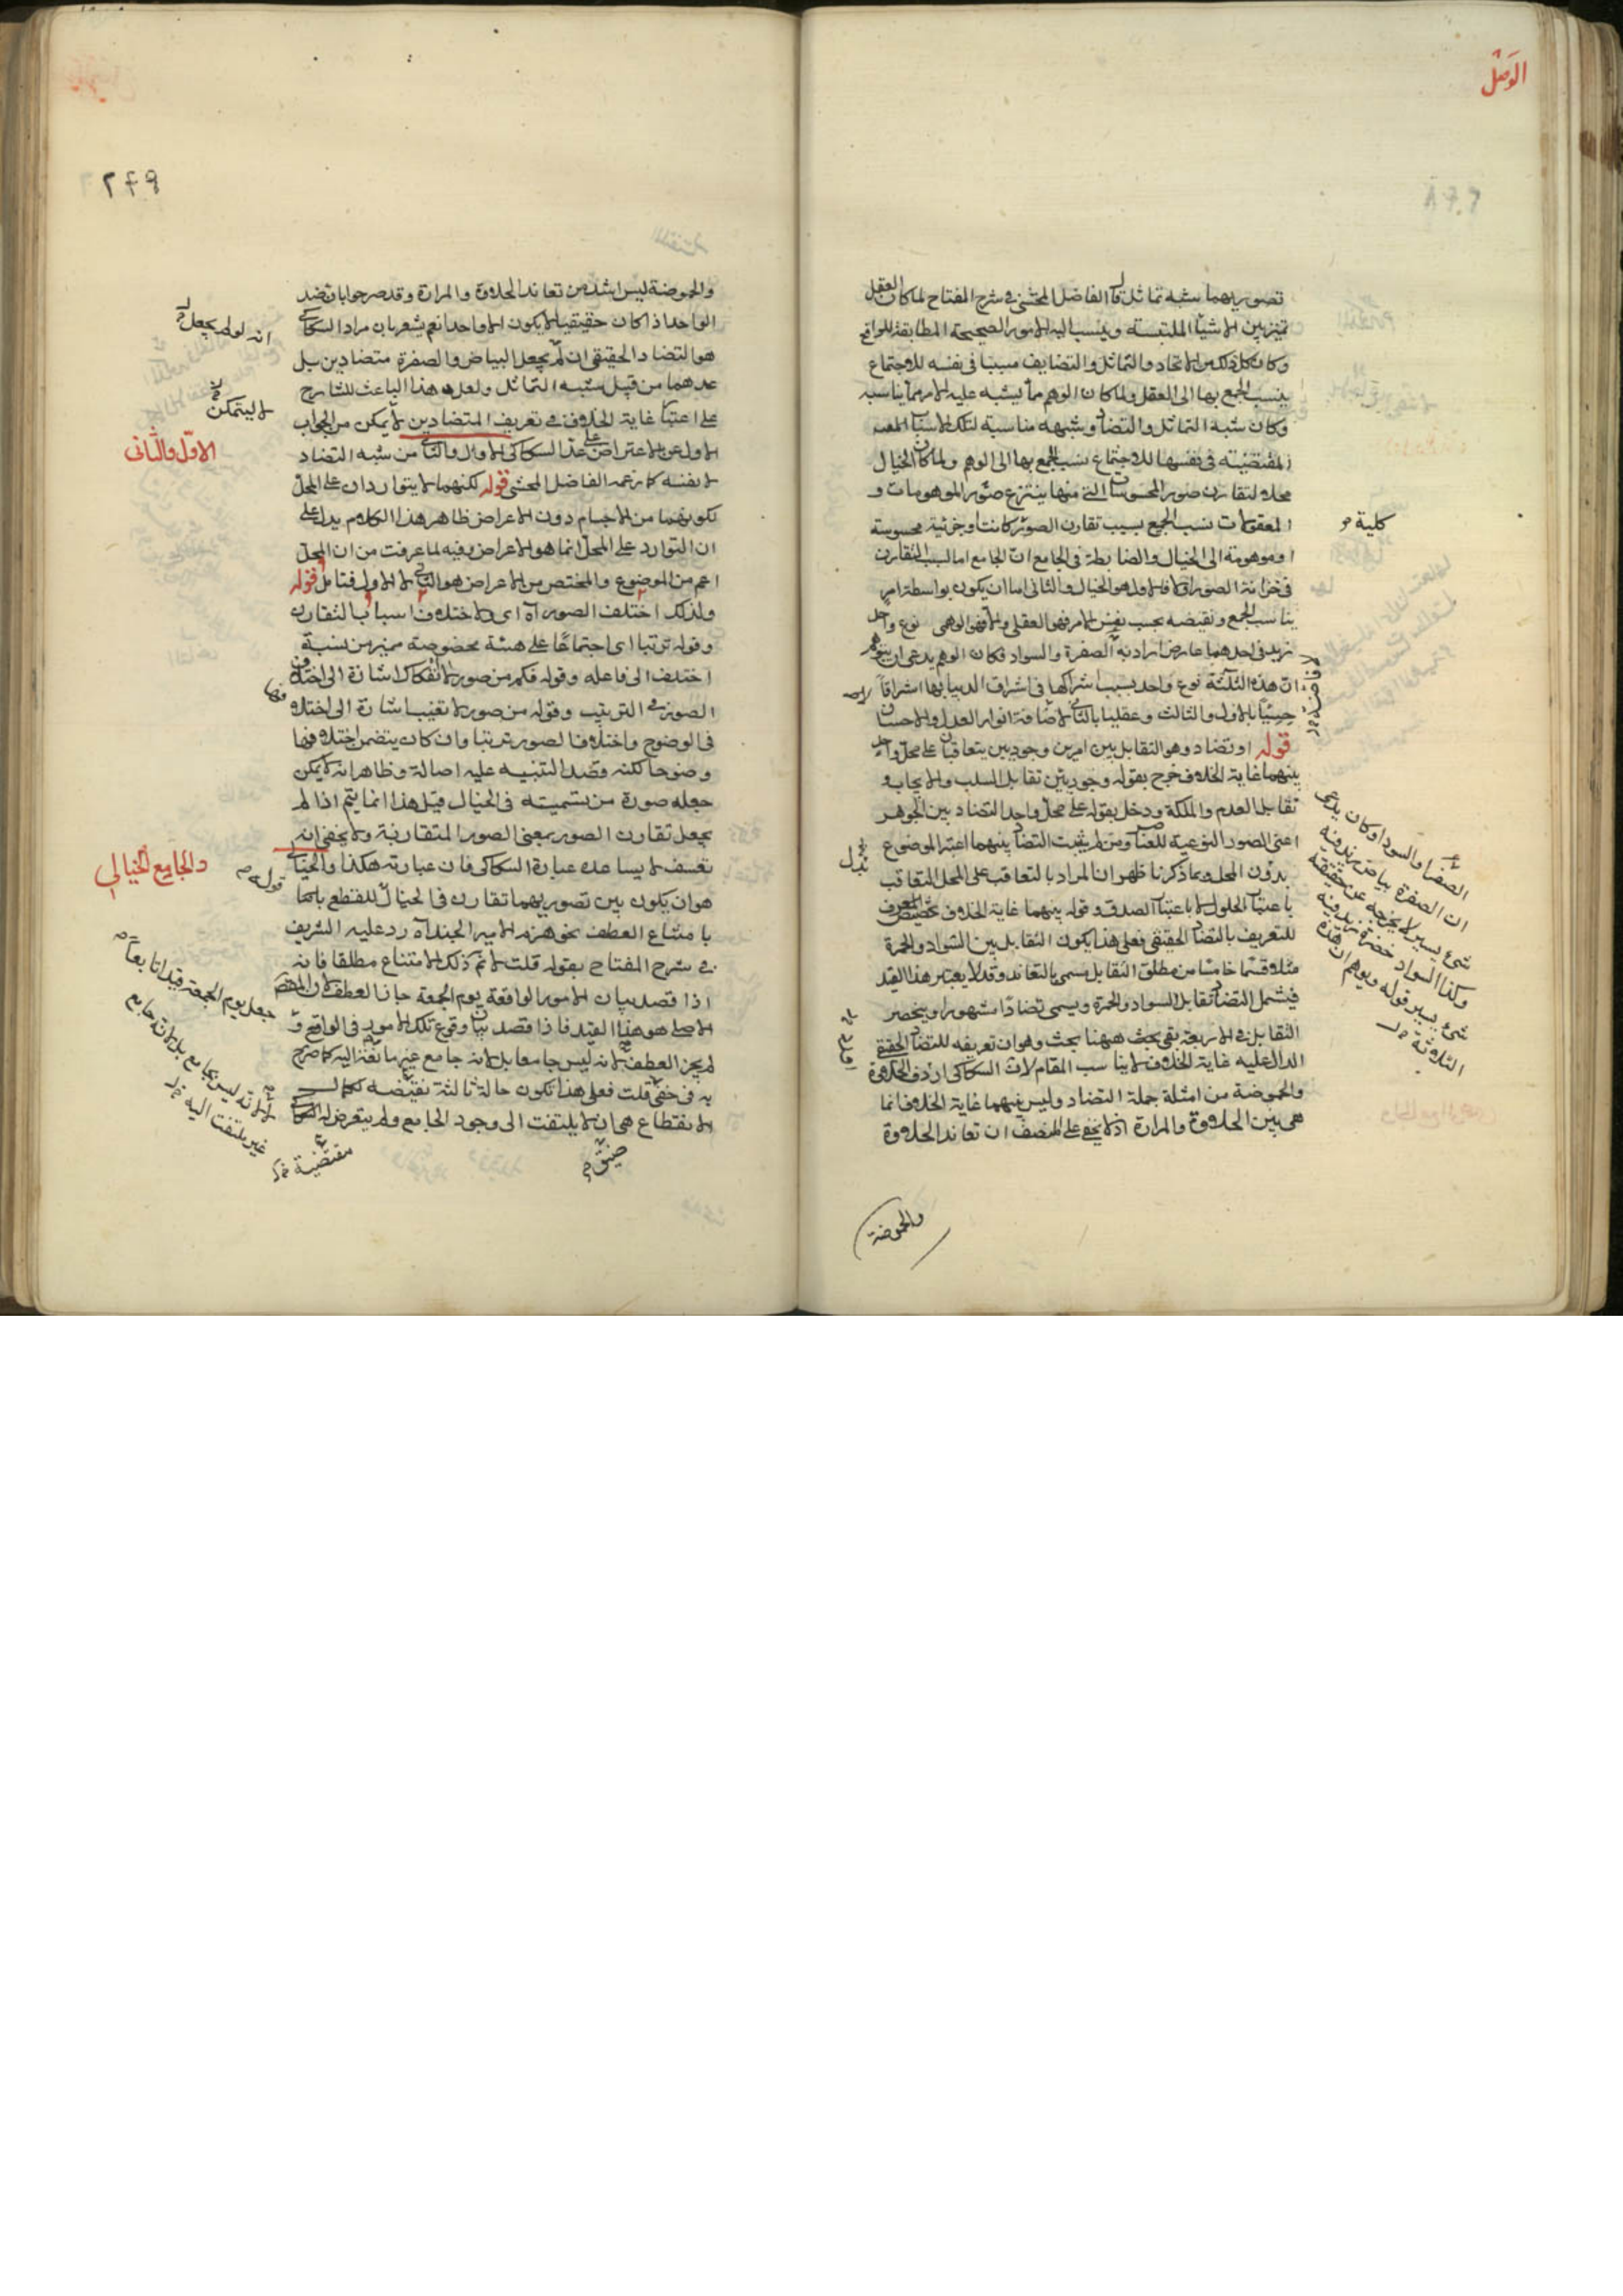 الوصل
تصوريهما شبه تماثل قال الفاضل المحشى فى شرح المفتاح لما كان العقل
تميز بين الاشياء الملتبسة وينسب اليه الامور الصحيحة المطابقة للواقع
وكان كل ذلك من الاتحاد والتماثل والتضايف مببا فى نفسه للاجتماع
ينسب الجمع بها الى العقل ولما كان الوهم مما يشبه عليه الامر مما يناسبه
وكان شبه التماثل والتضاد وشبهه مناسبة لتلك الاسباب
المقتضية فى نفسها للاجتماع نسب الجمع بها الى الوهم ولما كان الخيال
محلا لتقارن صور المحسوسات التى منها ينتزع صور الموهومات و
المعقولات نسب الجمع بسبب تقارن الصور كانت او جزئية محسوسة
كلية
او موهومة الى الخيال والضابطة فى الجامع ان الجامع اما لسبب التقارن
فى خزانة الصور اولا فالاول هو الخيال والثانى اما ان يكون بواسطة امر
يناسب الجمع ونقيضه بحسب نفس الامر فهو العقلى والا فهو الوهمى نوع واحد
زيد فى احدهما عارض اراد به الصفرة والسواد فكان الوهم يدعى ان يتوهم
ان هذه الثلثة نوع واحد بسبب اشراكها فى اشراق الدنيا بها اشراقا
حسيا بالاول والثالث وعقليا بالثانى لاضافة انوار العدل والاحسان
قوله او تضاد وهو التقابل بين امرين وجوديين يتعاقبان على محل واحد
بينهما غاية الخلاف خرج بقوله وجوديين تقابل السلب والايجاب و
تقابل العدم والملكة ودخل بقوله على محل واحد التضاد بين الجواهر
اعنى الصور النوعية للعناصر ومن لم يثبت التضاد بينهما اعتبر الموضوع
بدل
بدون المحل وبما ذكرنا ظهر ان المراد بالتعاقب على المحل التعاقب
باعتبار الحلول لا باعتبار الصدق وقوله بينهما غاية الخلاف تخصيص المعرف
للتعريف بالتضاد الحقيقى فعلى هذا يكون التقابل بين السواد والحمرة
مثلا قسما خامسا من مطلق التقابل يسمى بالتعاند وقد لا يعتبر هذا القيد
فيشمل التضاد تقابل السواد والحمرة ويسمى تضادا مشهورا وينحصر
التقابل فى الاربعة بقى بحث ههنا بحث وهو ان تعريفه للتضاد الحقيقى
الدال عليه غاية الخلاف لا يناسب المقام لان السكاكى اردف الحلاوة
والحموضة من امثلة جملة التضاد وليس فيهما غاية الخلاف انما
هى بين الحلاوة والمرارة اذ لا يخفى على المنصف ان تعاند الحلاوة
الصفراء والسوداء وكان يدعى
ان الصفرة بياض زيد فيه
شئ يسير لا يخرجه عن حقيقته
وكذا السواد خضرة زيد فيه
شئ يسير قوله ويوهم ان هذه
الثلاثة
والحموضة
٢٤٩
والحموضة ليس اشد من تعاند الحلاوة والمرارة وقد صرحوا بان ضد
الواحد اذا كان حقيقيا لا يكون الا واحدا نعم يشعر بان مراد السكاكى
انه لو لم يجعل
هو التضاد الحقيقى ان لم يجعل البياض والصفرة متضادين بل
عدهما من قبيل شبه التماثل ولعل هذا الباعث للشارح
لا ليتمكن
على اعتبار غاية الخلاف فى تعريف المتضادين لا يمكن من الجواب
الاول عن الاعتراض على عد السكاكى الاول والثانى من شبه التضاد
الاول والثانى
لا بنفسه كما زعمه الفاضل المحشى قوله لكنهما لا يتواردان على المحل
لكونهما من الاجسام دون الاعراض ظاهر هذا الكلام يدل على
ان التوارد على المحل انما هو الاعراض وفيه لما عرفت من ان المحل
اعم من الموضوع والمختص من الاعراض هو الثانى لا الاول فتامل قوله
ولذلك اختلف الصور اه اى ولاختلاف اسباب التقارن
وقوله ترتبا اى اجتماعا على هيئة مخصوصة مميز من نسبة
اختلف الى فاعله وقوله فكم من صور لا انفكاك اشارة الى اختلاف
الصور فى الترتيب وقوله من صور لا تغيب اشارة الى اختلاف
فى الوضوح واختلاف الصور ترتبا وان كان يتضمن اختلافها
وضوحا لكنه قصد التنبيه عليه اصالة وظاهر انه لا يمكن
جعله صورة من تسميته فى الخيال قيل هذا انما يتم اذا لم
يجعل تقارن الصور بمعنى الصور المتقارنة ولا يخفى انه
تعسف لا يساعده عبارة السكاكى فان عبارته هكذا والخيالى
والجامع الخيالى
قوله
هو ان يكون بين تصوريهما تقارن فى الخيال للقطع
بامتناع العطف نحو هزم الامير الجند اه رد عليه الشريف
فى شرح المفتاح بقوله قلت لا نم ذلك الامتناع مطلقا فانه
اذا قصد بيان الامور الواقعة يوم الجمعة جاز العطف لان المقصود
جعل يوم الجمعة قيدا تابعا
الاصلى هو هذا القيد فاذا قصد بيان وقوع تلك الامور فى الواقع و
لم يجز العطف لانه ليس جامعا بل لانه جامع غير ملتفت اليه كما صرح
به فى خفى قلت فعلى هذا تكون حالة ثالثة نقيضه
الانقطاع هى ان لا يلتفت الى وجود الجامع ولم يتعرض له السكاكى
لا لانه ليس بجامع بل لانه جامع
غير ملتفت اليه
مقتضية
ضيق